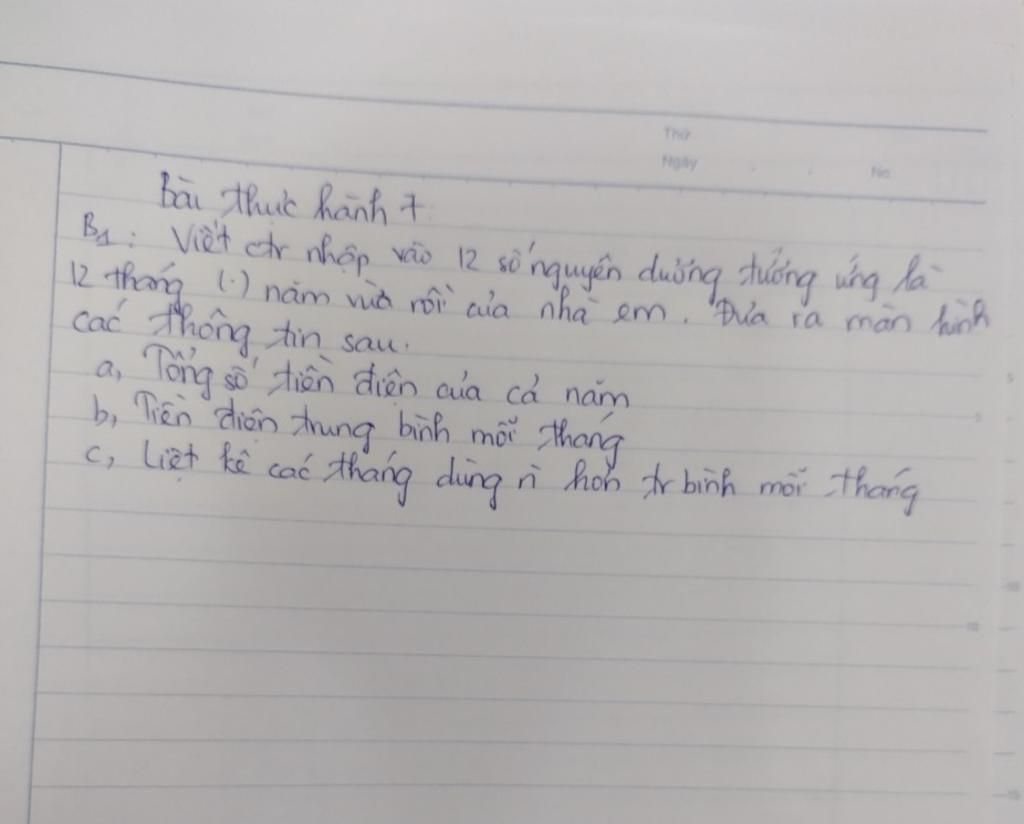 Thứ
Ngày No
Bài thực hành 7
B1: Viết ctr nhập vào 12 số nguyên dương tương ứng là
12 tháng (.) năm vừa rồi của nhà em. Đưa ra màn hình
các thông tin sau.
a, Tổng số tiền điện của cả năm
b, Tiền điện trung bình mỗi tháng
c, Liệt kê các tháng dùng n̄ hơn tr bình mỗi tháng